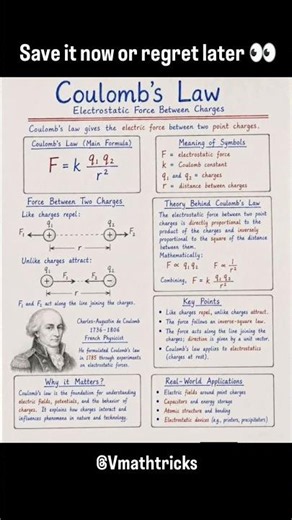 Save it now or regret later 👀
Coulomb's Law
Electrostatic Force Between Charges
Coulomb's law gives the electric force between two point charges.
Coulomb's Law (Main Formula)
F = k q₁ q₂ / r²
Meaning of Symbols
F = electrostatic force
k = Coulomb constant
q₁ and q₂ = charges
r = distance between charges
Force Between Two Charges
Like charges repel:
q₁ q₂
F₁ + + F₂
r
Unlike charges attract:
q₁ q₂
+ F₁ F₂ −
r
F₁ and F₂ act along the line joining the charges.
Theory Behind Coulomb's Law
The electrostatic force between two point
charges is directly proportional to the
product of the charges and inversely
proportional to the square of the distance
between them.
Mathematically:
F ∝ q₁q₂ F ∝ 1/r²
Combining, F = k q₁q₂ / r²
Charles-Augustin de Coulomb
1736–1806
French Physicist
He formulated Coulomb's law
in 1785 through experiments
on electrostatic forces.
Key Points
• Like charges repel, unlike charges attract.
• The force follows an inverse-square law.
• The force acts along the line joining the
charges; direction is given by a unit vector.
• Coulomb's law applies to electrostatics
(charges at rest).
Why it Matters?
Coulomb's law is the foundation for understanding
electric fields, potentials, and the behavior of
charges. It explains how charges interact and
influences phenomena in nature and technology.
Real-World Applications
• Electric fields around point charges
• Capacitors and energy storage
• Atomic structure and bonding
• Electrostatic devices (e.g., printers, precipitators)
@Vmathtricks